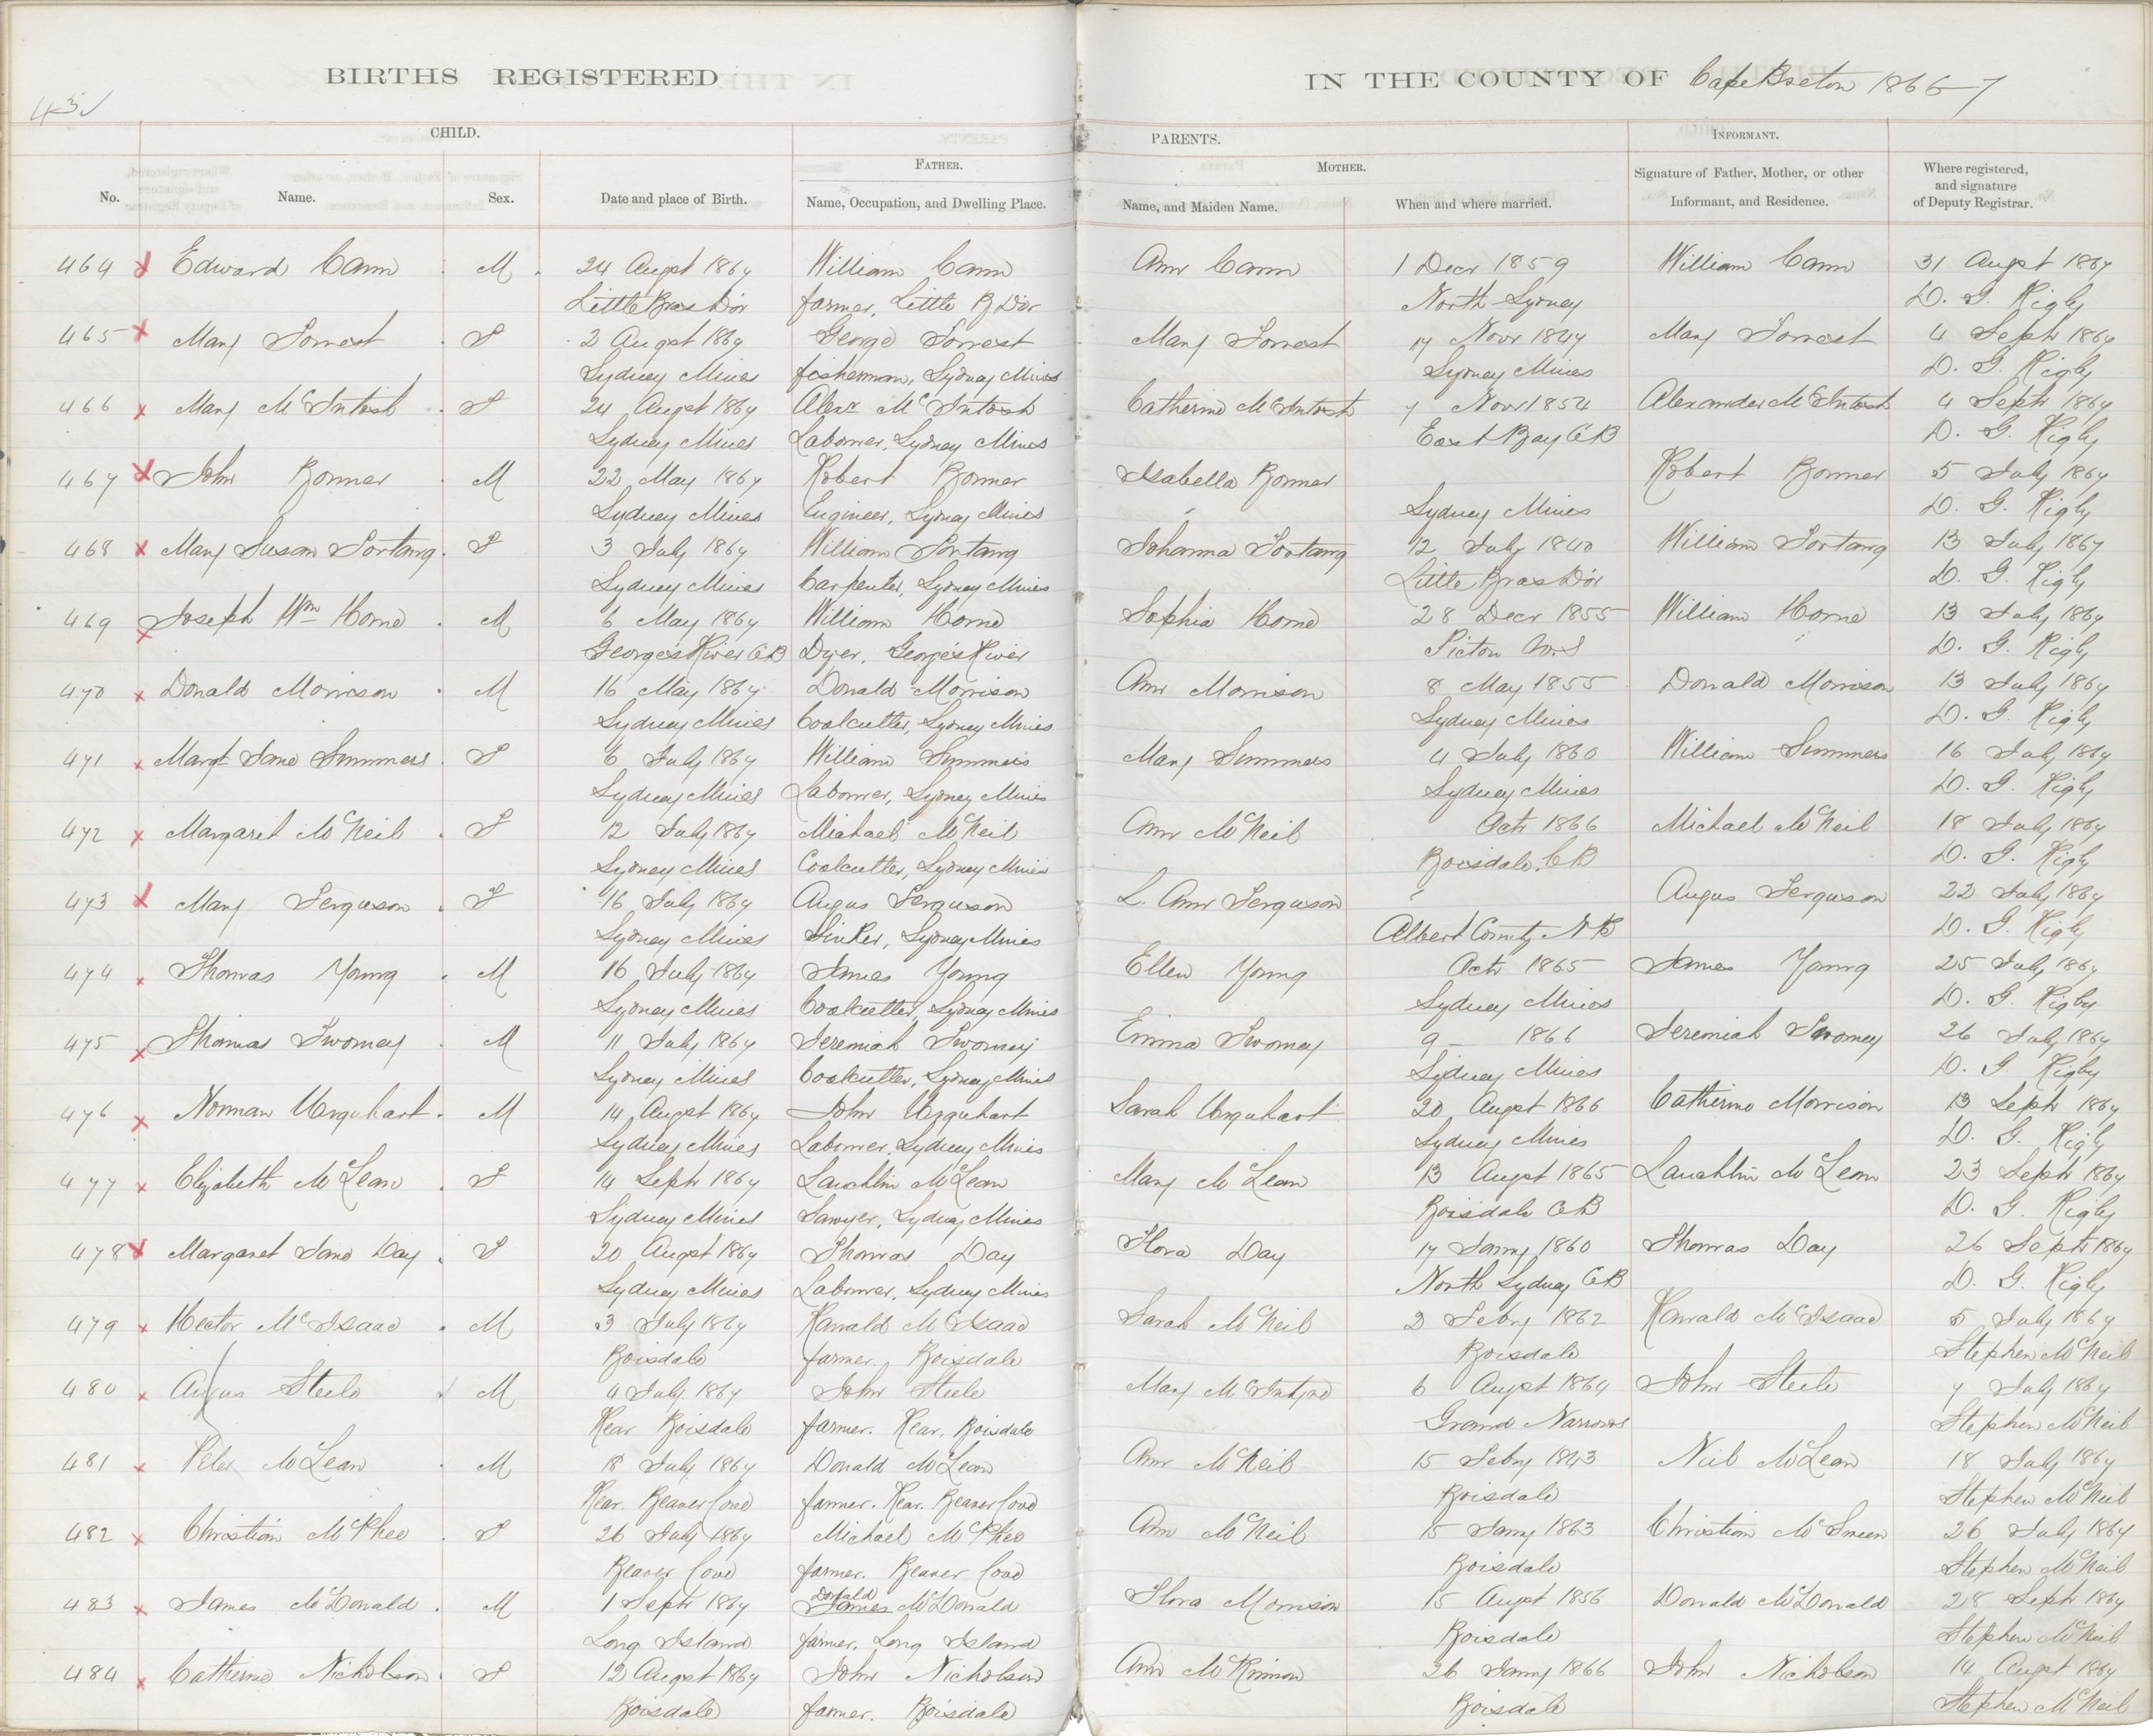 BIRTHS REGISTERED IN THE COUNTY OF Cape Breton 1866-7
43
CHILD. PARENTS. INFORMANT.
FATHER. MOTHER.
No. Name. Sex. Date and place of Birth. Name, Occupation, and Dwelling Place. Name, and Maiden Name. When and where married. Signature of Father, Mother, or other Informant, and Residence. Where registered, and signature of Deputy Registrar.
464 Edward Cann M 24 Augst 1867 William Cann Ann Cann 1 Decr 1859 William Cann 31 Augst 1867
Little Bras Dor farmer, Little B Dor North Sydney D. G. Rigby
465 Mary Forrest F 2 Augst 1867 George Forrest Mary Forrest 17 Novr 1847 Mary Forrest 4 Septr 1867
Sydney Mines fisherman, Sydney Mines Sydney Mines D. G. Rigby
466 Mary McIntosh F 24 Augst 1867 Alexr McIntosh Catherine McIntosh 7 Novr 1854 Alexander McIntosh 4 Septr 1867
Sydney Mines Labourer, Sydney Mines East Bay CB D. G. Rigby
467 John Bonner M 22 May 1867 Robert Bonner Isabella Bonner Robert Bonner 5 July 1867
Sydney Mines Engineer, Sydney Mines Sydney Mines D. G. Rigby
468 Mary Susan Fortang F 3 July 1867 William Fortang Johanna Fortang 12 July 1840 William Fortang 13 July 1867
Sydney Mines Carpenter, Sydney Mines Little Bras Dor D. G. Rigby
469 Joseph Wm Horne M 6 May 1867 William Horne Sophia Horne 28 Decr 1855 William Horne 13 July 1867
George's River CB Dyer, George's River Pictou N.S D. G. Rigby
470 Donald Morrison M 16 May 1867 Donald Morrison Ann Morrison 8 May 1855 Donald Morrison 13 July 1867
Sydney Mines Coalcutter, Sydney Mines Sydney Mines D. G. Rigby
471 Margt Jane Summers F 6 July 1867 William Summers Mary Summers 4 July 1860 William Summers 16 July 1867
Sydney Mines Labourer, Sydney Mines Sydney Mines D. G. Rigby
472 Margaret McNeil F 12 July 1867 Michael McNeil Ann McNeil Octr 1866 Michael McNeil 18 July 1867
Sydney Mines Coalcutter, Sydney Mines Boisdale, CB D. G. Rigby
473 Mary Ferguson F 16 July 1867 Angus Ferguson L. Ann Ferguson Angus Ferguson 22 July 1867
Sydney Mines Sinker, Sydney Mines Albert County NB D. G. Rigby
474 Thomas Young M 16 July 1867 James Young Ellen Young Octr 1865 James Young 25 July 1867
Sydney Mines Coalcutter, Sydney Mines Sydney Mines D. G. Rigby
475 Thomas Twomey M 11 July 1867 Jeremiah Twomey Emma Twomey 9 1866 Jeremiah Twomey 26 July 1867
Sydney Mines Coalcutter, Sydney Mines Sydney Mines D. G. Rigby
476 Norman Urquhart M 14 Augst 1867 John Urquhart Sarah Urquhart 20 Augst 1866 Catherine Morrison 13 Septr 1867
Sydney Mines Labourer, Sydney Mines Sydney Mines D. G. Rigby
477 Elizabeth McLean F 14 Septr 1867 Lauchlin McLean Mary McLean 13 Augst 1865 Lauchlin McLean 23 Septr 1867
Sydney Mines Sawyer, Sydney Mines Boisdale CB D. G. Rigby
478 Margaret Jane Day F 20 Augst 1867 Thomas Day Flora Day 17 Jany 1860 Thomas Day 26 Septr 1867
Sydney Mines Labourer, Sydney Mines North Sydney CB D. G. Rigby
479 Hector McIsaac M 3 July 1867 Ranald McIsaac Sarah McNeil 2 Febry 1862 Ranald McIsaac 5 July 1867
Boisdale farmer, Boisdale Boisdale Stephen McNeil
480 Angus Steele M 4 July 1867 John Steele Mary McIntyre 6 Augst 1864 John Steele 7 July 1867
Rear Boisdale farmer. Rear, Boisdale Grand Narrows Stephen McNeil
481 Peter McLean M 18 July 1867 Donald McLean Ann McNeil 15 Febry 1843 Neil McLean 18 July 1867
Rear. Beaver Cove farmer. Rear. Beaver Cove Boisdale Stephen McNeil
482 Christian McPhee F 26 July 1867 Michael McPhee Ann McNeil 15 Jany 1863 Christian 26 July 1867
Beaver Cove farmer. Beaver Cove Boisdale Stephen McNeil
483 James McDonald M 1 Septr 1867 Donald James McDonald Flora Morrison 15 Augst 1856 Donald McDonald 28 Septr 1867
Long Island farmer, Long Island Boisdale Stephen McNeil
484 Catherine Nicholson F 12 Augst 1867 John Nicholson Ann McKinnon 26 Jany 1866 John Nicholson 14 Augst 1867
Boisdale farmer. Boisdale Boisdale Stephen McNeil